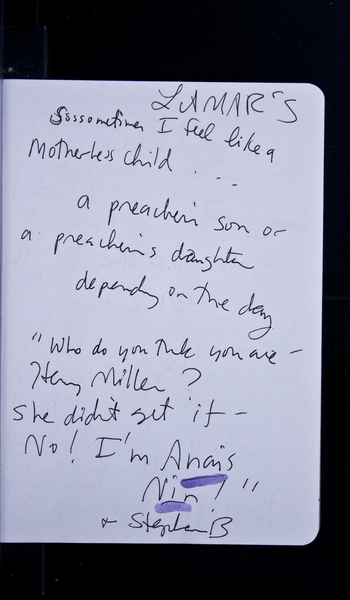 LAMAR'S
Sosometimes I feel like a
Motherless child . . .
a preacher's son or
a preacher's daughter
depending on the day
"Who do you think you are -
Henry Miller?
She didn't get it -
No! I'm Anais
Nin!"
+ Stephen B